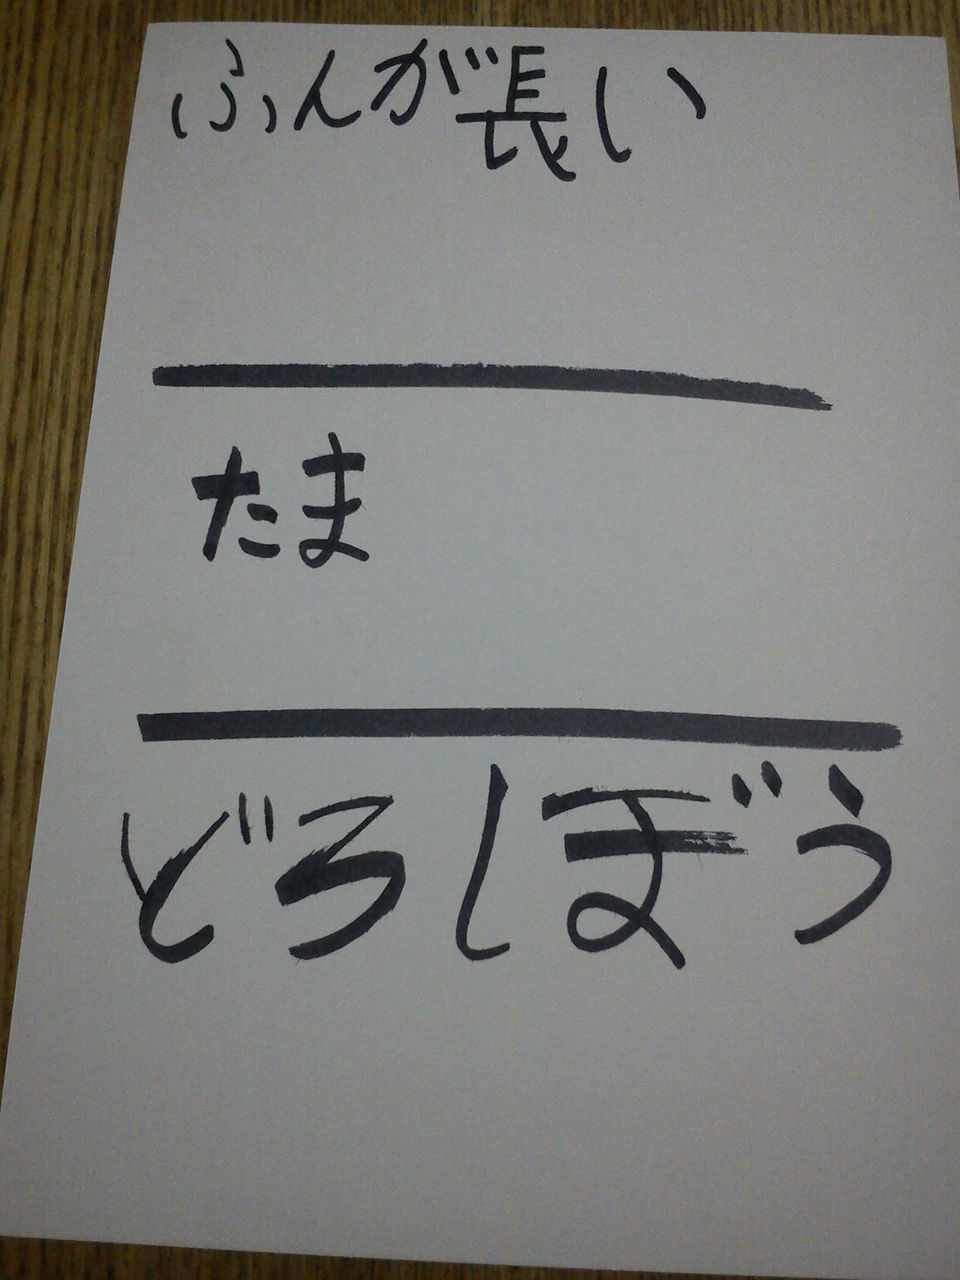 ふんが長い
たま
どろしぼう